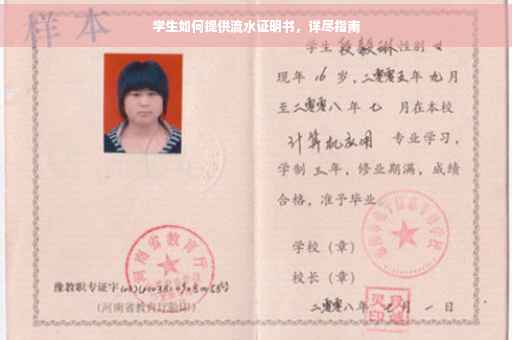 学生如何提供流水证明书，详尽指南
样本
学生段毅琳性别女
现年16岁，二零零五年九月
至二零零八年七月在本校
计算机应用 专业学习，
学制三年，修业期满，成绩
合格，准予毕业
学校（章）
校长（章）
二零零八年七月一日
河南省教育厅
豫教职专证字
（河南省教育厅验印）